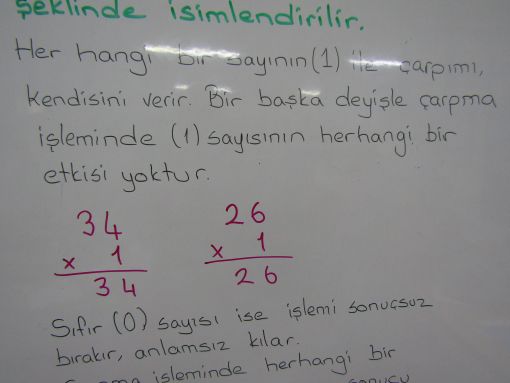 şeklinde isimlendirilir.
Her hangi bir sayının (1) ile çarpımı,
kendisini verir. Bir başka deyişle çarpma
işleminde (1) sayısının herhangi bir
etkisi yoktur.
34 26
x 1 x 1
34 26
Sıfır (0) sayısı ise işlemi sonuçsuz
bırakır, anlamsız kılar.
işleminde herhangi bir
sonucu